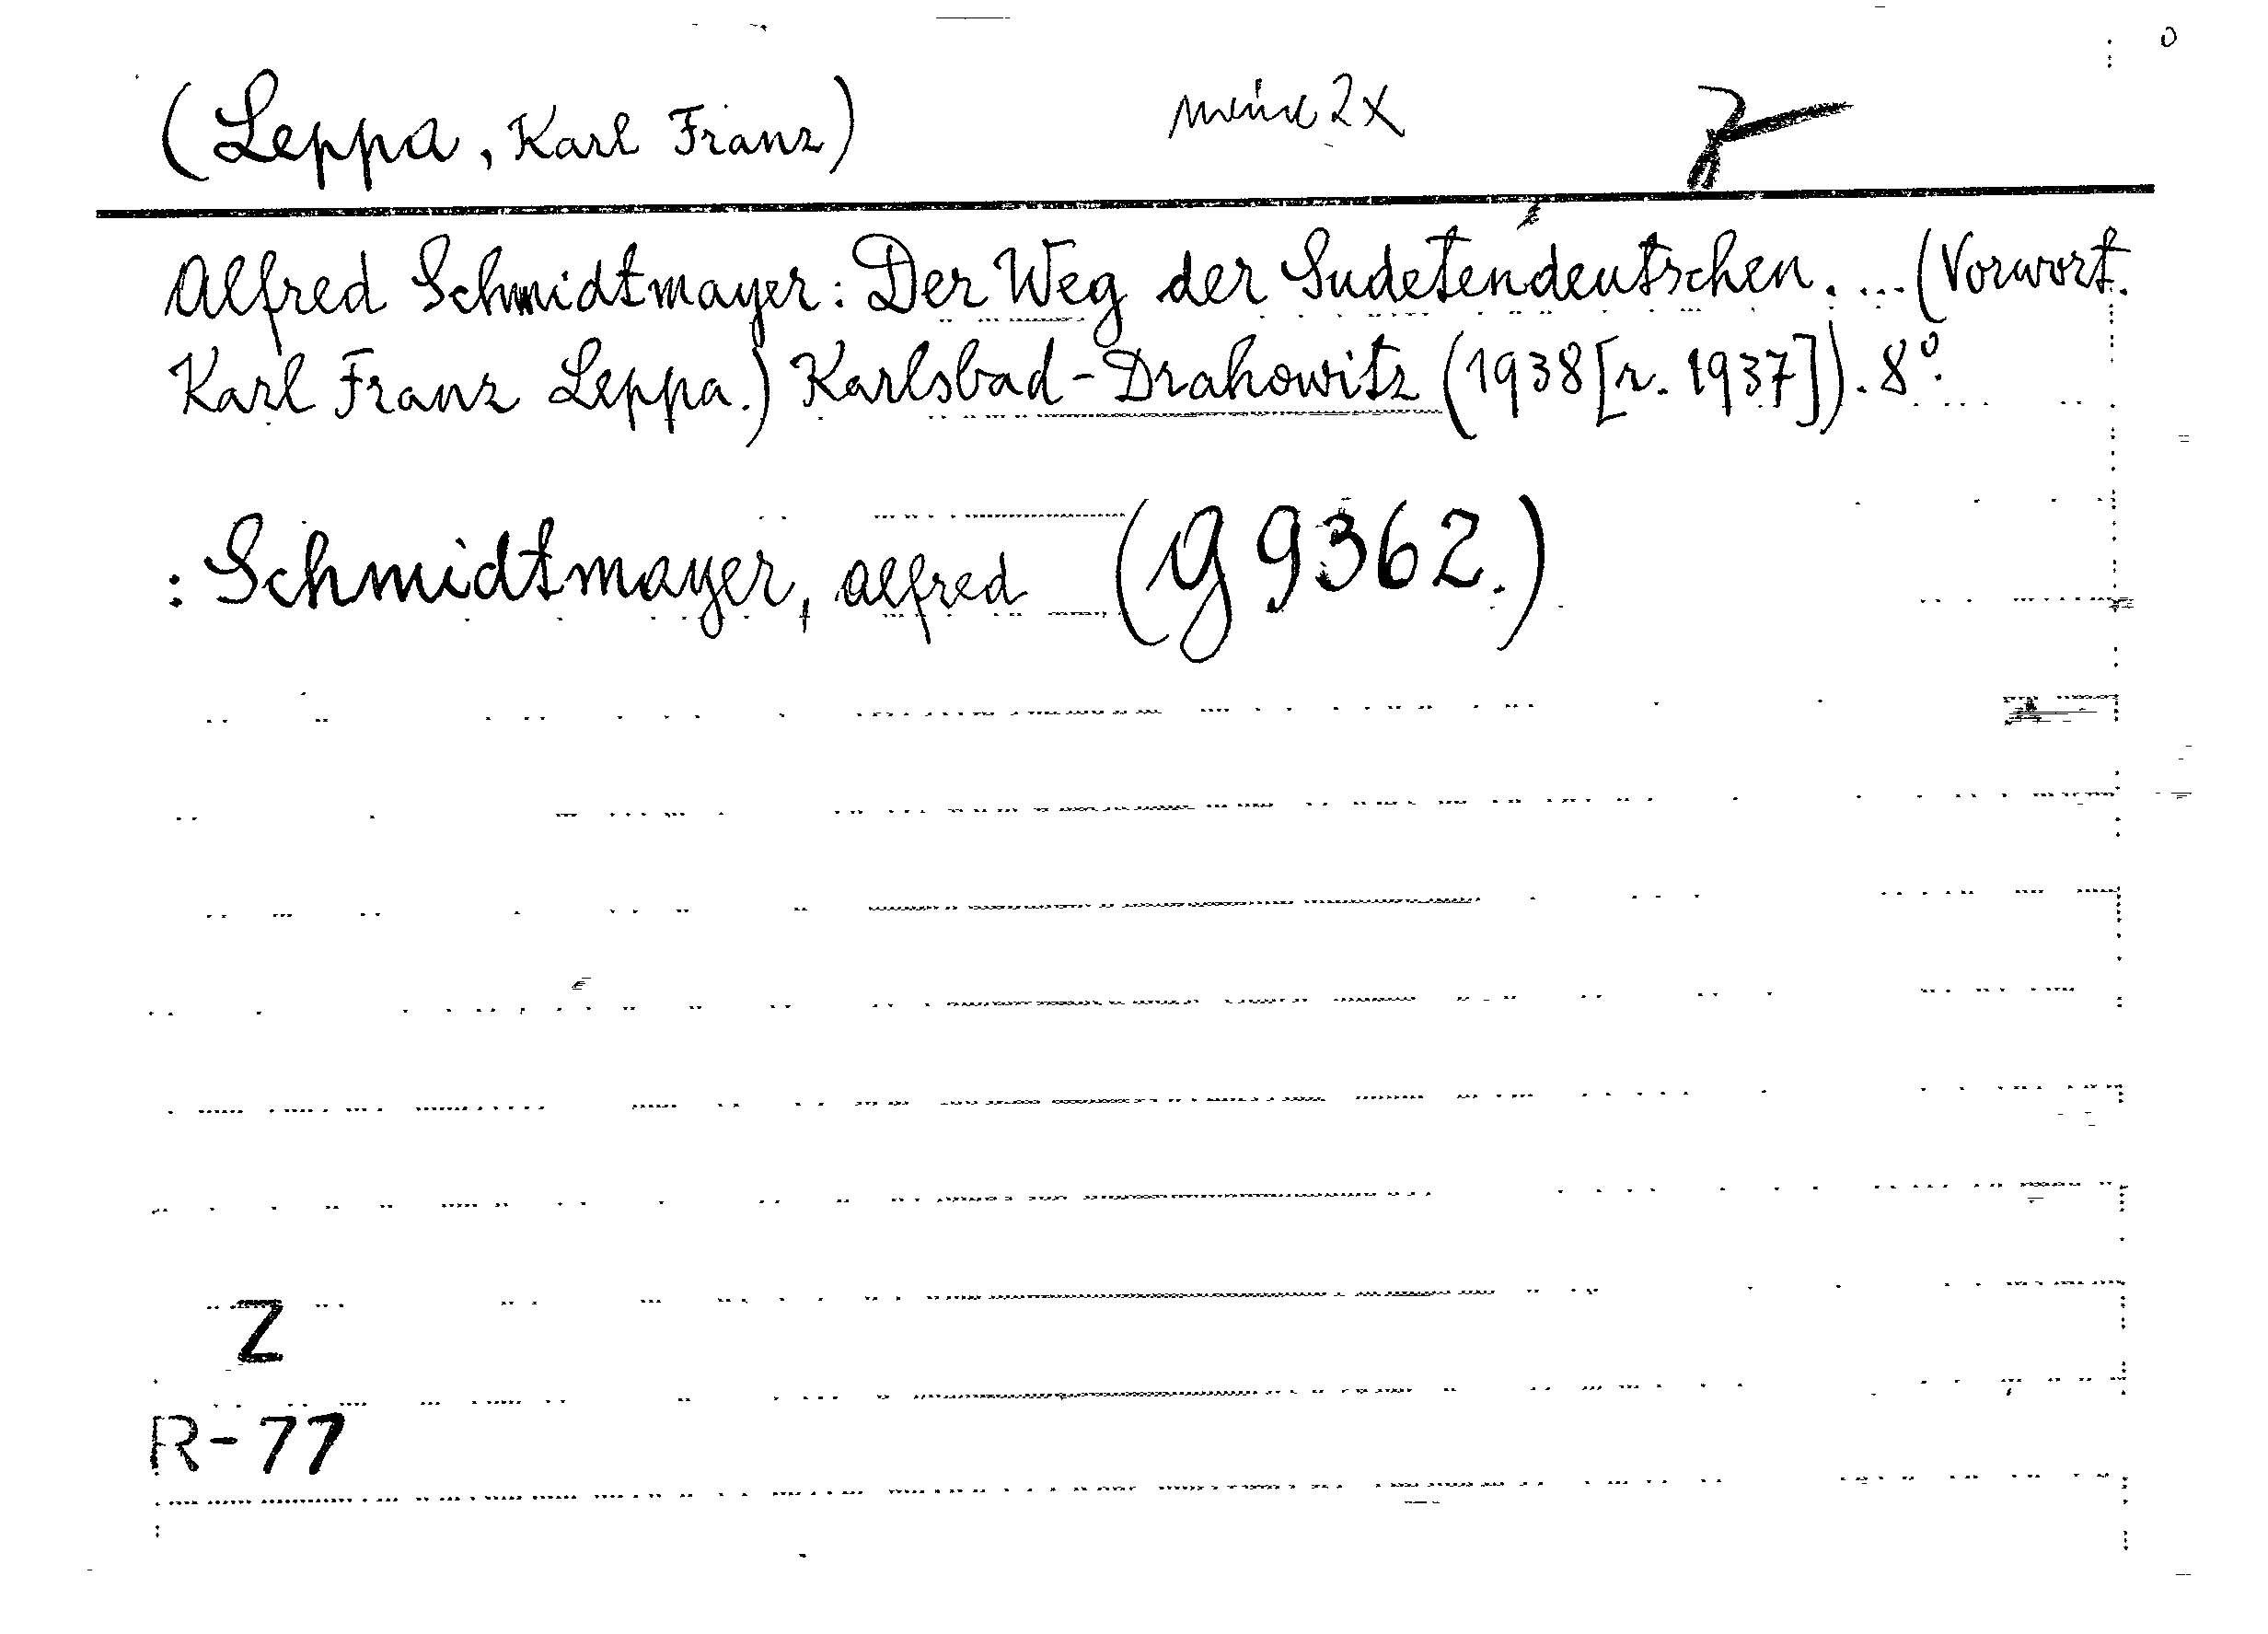 (Leppa, Karl Franz) 2x
Alfred Schmidtmayer: Der Weg der Sudetendeutschen. ... (Vorwort.
Karl Franz Leppa.) Karlsbad-Drahowitz (1938 [r. 1937]). 8°.
: Schmidtmayer, Alfred (G 9362.)
Z
R-77